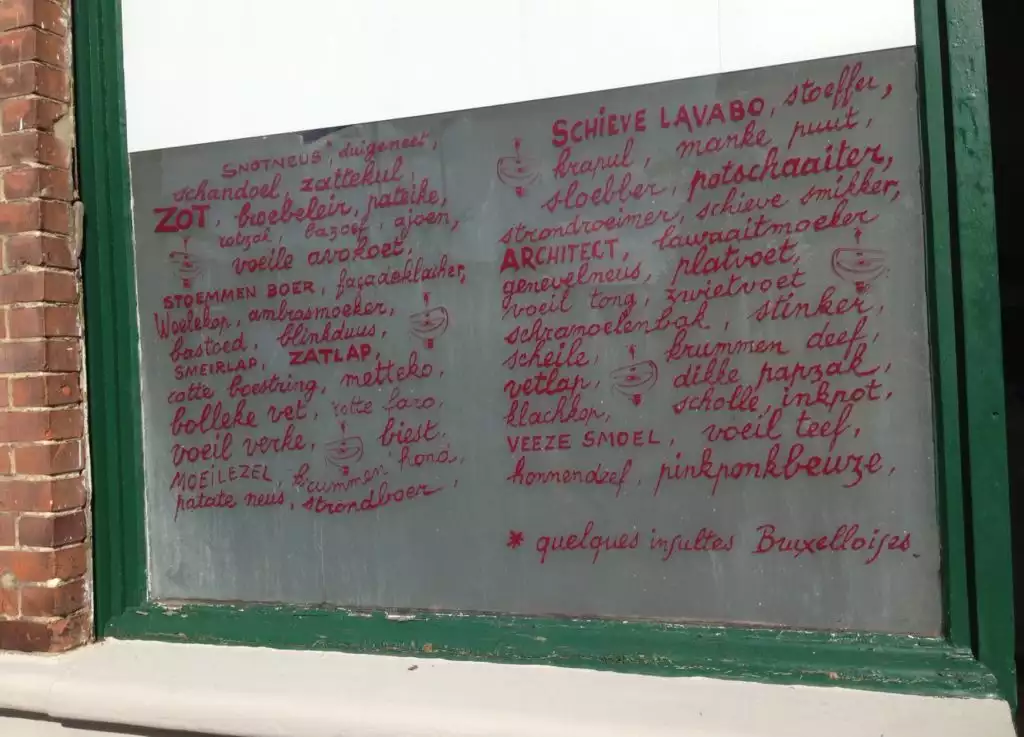 SNOTNEUS*, duigeneet,
schandoel, zattekul,
ZOT, broebeleir, pateike,
rotzak, bazoef, ajoen,
voeile avokoet,
STOEMMEN BOER, façadeklacher,
Woelekop, ambrasmoeker,
bastoed, blinkduus,
SMEIRLAP, ZATLAP,
rotte boestring, metteko,
bolleke vet, rotte faro,
voeil verke, biest,
MOEILEZEL, krummen hond,
patate neus, strondboer,
SCHIEVE LAVABO, stoeffer,
krapul, manke puut,
sloebber, potschaaiter,
strondroeimer, schieve smikker,
ARCHITECT, lawaaitmoeker
genevelneus, platvoet,
voeil tong, zwietvoet
schramoelenbak, stinker,
scheile, krummen deef,
vetlap, dikke papzak,
klachkop, scholle, inkpot,
VEEZE SMOEL, voeil teef,
honnendeef, pinkponkbeuze,
* quelques insultes Bruxelloises.